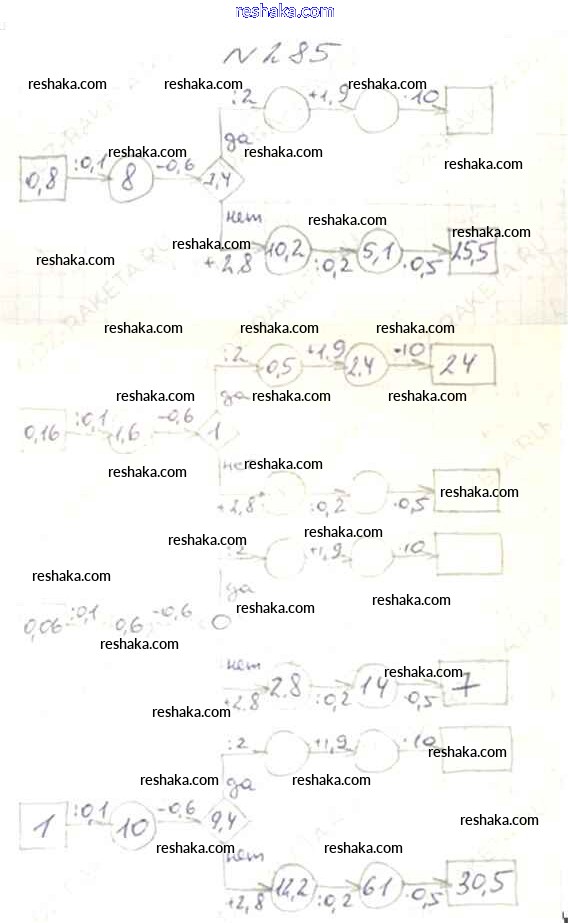 reshaka.com
N 285
reshaka.com reshaka.com reshaka.com
:2 +1,9 ·10
да
reshaka.com reshaka.com reshaka.com
0,8 :0,1 8 -0,6 7,4
нет
reshaka.com reshaka.com reshaka.com reshaka.com
+2,8 10,2 :0,2 5,1 ·0,5 25,5
reshaka.com reshaka.com reshaka.com
:2 0,5 +1,9 2,4 ·10 24
да
reshaka.com reshaka.com reshaka.com
0,16 :0,1 1,6 -0,6 1
не
reshaka.com reshaka.com reshaka.com
+2,8 :0,2 ·0,5
reshaka.com reshaka.com
:2 +1,9 ·10
да
reshaka.com reshaka.com reshaka.com
0,06 :0,1 0,6 -0,6 0
reshaka.com
нет
reshaka.com
+2,8 2,8 :0,2 14 ·0,5 7
reshaka.com
:2 +1,9 ·10
reshaka.com
да
reshaka.com reshaka.com
1 :0,1 10 -0,6 9,4
reshaka.com
нет
reshaka.com reshaka.com
+2,8 12,2 :0,2 61 ·0,5 30,5